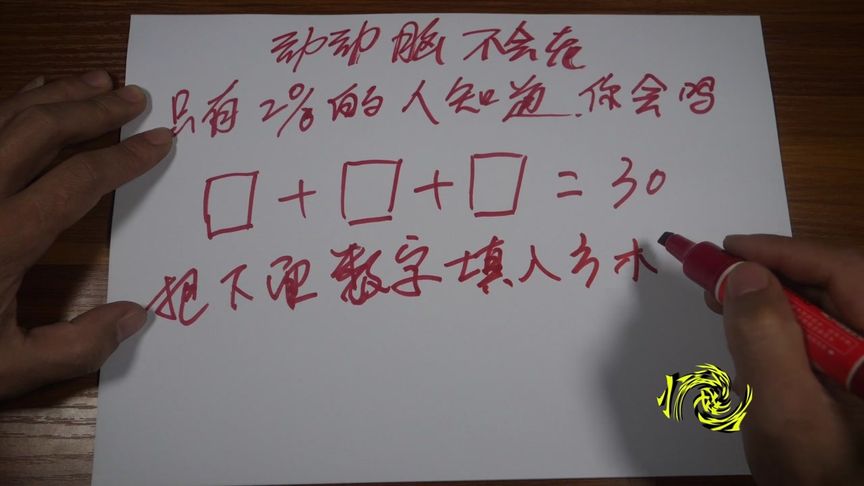 动动脑 不会老
只有2%的人知道.你会吗
□+□+□=30
把下面数字填入方木